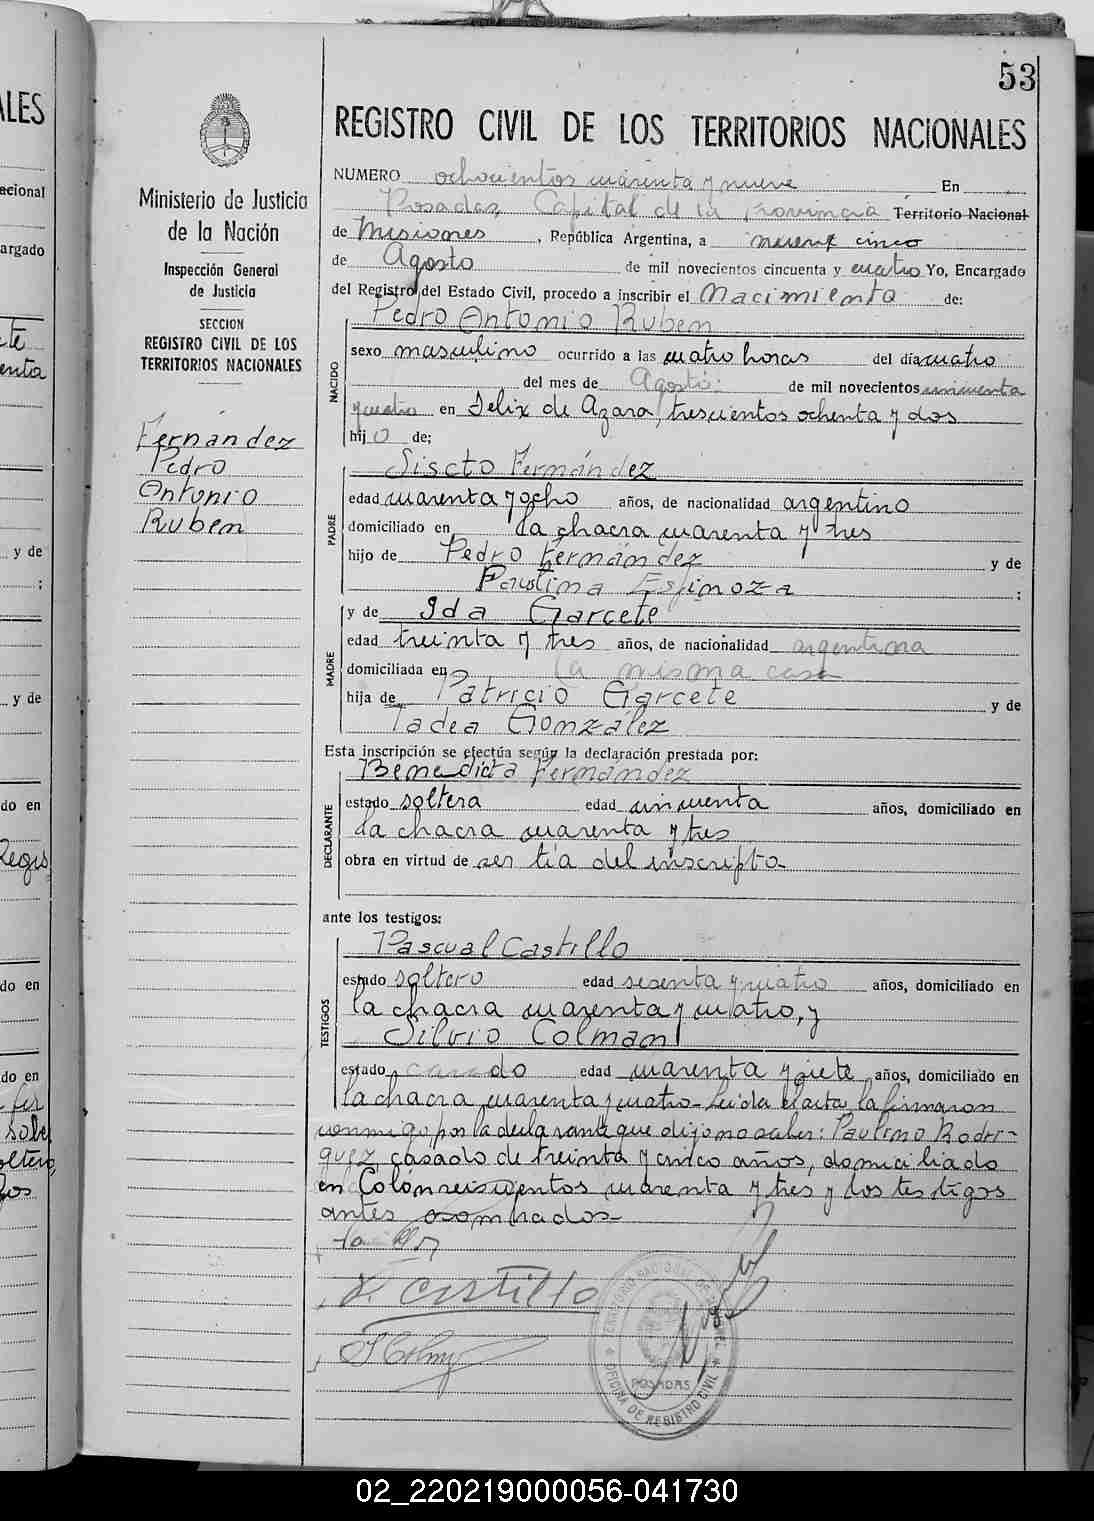 53
REGISTRO CIVIL DE LOS TERRITORIOS NACIONALES
Ministerio de Justicia
de la Nación
Inspección General
de Justicia
SECCION
REGISTRO CIVIL DE LOS
TERRITORIOS NACIONALES
Fernández
Pedro
Antonio
Ruben
NUMERO ochocientos cuarenta y nueve En
Posadas, Capital de la Provincia Territorio Nacional
de Misiones, República Argentina, a cinco
de Agosto de mil novecientos cincuenta y cuatro Yo, Encargado
del Registro del Estado Civil, procedo a inscribir el Nacimiento de:
Pedro Antonio Ruben
NACIDO
sexo masculino ocurrido a las cuatro horas del día cuatro
del mes de Agosto de mil novecientos cincuenta
y cuatro en Felix de Azara, trescientos ochenta y dos
hijo de;
PADRE
Siscto Fernández
edad cuarenta y ocho años, de nacionalidad argentino
domiciliado en la chacra cuarenta y tres
hijo de Pedro Fernández y de
Paulina Espinoza ;
MADRE
y de Ida Garcete
edad treinta y tres años, de nacionalidad argentina
domiciliada en la misma casa
hija de Patricio Garcete y de
Tadea González
Esta inscripción se efectúa según la declaración prestada por:
DECLARANTE
Benedicta Fernández
estado soltera edad cincuenta años, domiciliado en
la chacra cuarenta y tres
obra en virtud de ser tía del inscripto
ante los testigos:
TESTIGOS
Pascual Castillo
estado soltero edad sesenta y cuatro años, domiciliado en
la chacra cuarenta y cuatro, y
Silvio Colman
estado casado edad cuarenta y siete años, domiciliado en
la chacra cuarenta y cuatro- Leída el acta, la firmaron
conmigo, por la declarante que dijo no saber: Paulino Rodri-
guez, casado de treinta y cinco años, domiciliado
en Colon seiscientos cuarenta y tres y los testigos
antes nombrados-
P. Castillo
S Colman
POSADAS
OFICINA DE REGISTRO CIVIL
ALES
acional
argado
te
enta
y de
;
y de
do en
Regis
do en
do en
sobe
oltero,
02_220219000056-041730